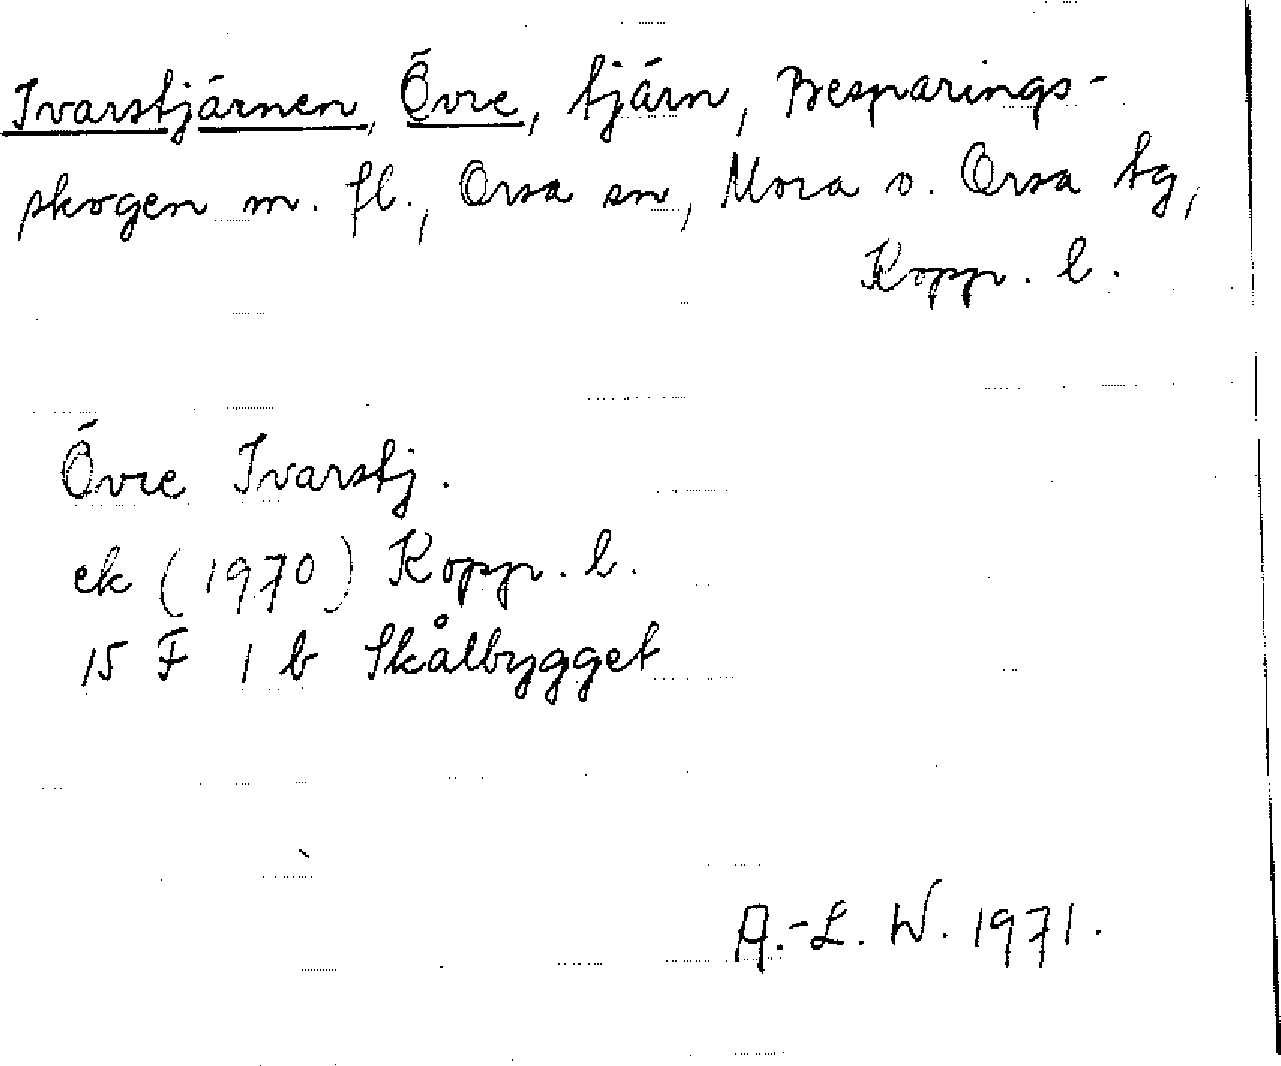 Ivarstjärnen, Övre, tjärn, Besparings-
skogen m. fl., Orsa sn, Mora o. Orsa tg,
Kopp. l.
Övre Ivarstj.
ek (1970) Kopp. l.
15 F 1 b Skålbygget
A.-L. W. 1971.